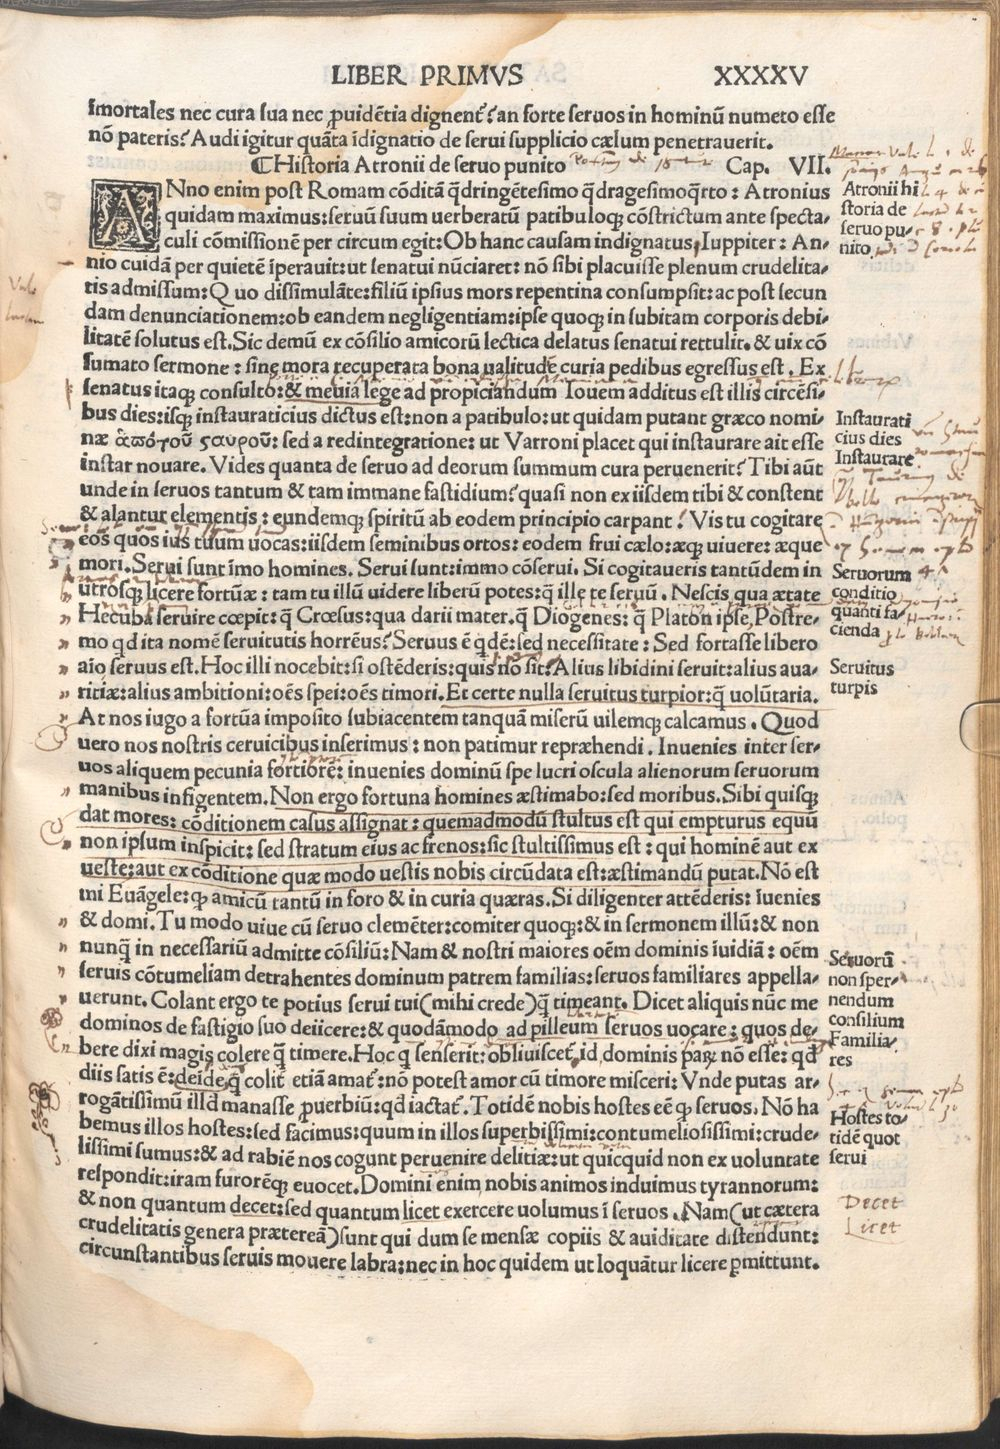 LIBER PRIMVS XXXXV
ſmortales nec cura ſua nec ꝓuidētia dignent᷑? an forte ſeruos in hominū numeto eſſe
nō pateris? Audi igitur quāta īdignatio de ſerui ſupplicio cælum penetrauerit.
¶Hiſtoria Atronii de ſeruo punito Cap. VII.
ANno enim poſt Romam cōditā q̄dringēteſimo q̄drageſimoq̄rto: Atronius
quidam maximus: ſeruū ſuum uerberatū patibuloq; cōſtrictum ante ſpecta-
culi cōmiſſionē per circum egit: Ob hanc cauſam indignatus Iuppiter: An-
nio cuidā per quietē īperauit: ut ſenatui nūciaret: nō ſibi placuiſſe plenum crudelita-
tis admiſſum: Quo diſſimulāte: filiū ipſius mors repentina conſumpſit: ac poſt ſecun
dam denunciationem: ob eandem negligentiam: ipſe quoq; in ſubitam corporis debi-
litatē ſolutus eſt. Sic demū ex cōſilio amicorū lectica delatus ſenatui rettulit. & uix cō
ſumato ſermone: ſine mora recuperata bona ualitudē curia pedibus egreſſus eſt. Ex
ſenatus itaq; conſulto: & meuia lege ad propiciandum Iouem additus eſt illis circēſi-
bus dies: iſq; inſtauraticius dictus eſt: non a patibulo: ut quidam putant græco nomi-
næ ἀπὸ τοῦ ςαυροῦ: ſed a redintegratione: ut Varroni placet qui inſtaurare ait eſſe
inſtar nouare. Vides quanta de ſeruo ad deorum ſummum cura peruenerit? Tibi aūt
unde in ſeruos tantum & tam immane faſtidium? quaſi non ex iiſdem tibi & conſtent
& alantur elementis: eundemq; ſpiritū ab eodem principio carpant? Vis tu cogitare
eos quos ius tuum uocas: iiſdem ſeminibus ortos: eodem frui cælo: æq; uiuere: æque
mori. Serui ſunt īmo homines. Serui ſunt: immo cōſerui. Si cogitaueris tantūdem in
utroſq; licere fortūæ: tam tu illū uidere liberū potes: q̄ ille te ſeruū. Neſcis qua ætate
Hecuba ſeruire cœpit: q̄ Crœſus: qua darii mater. q̄ Diogenes: q̄ Platon ipſe, Poſtre-
mo qd ita nomē ſeruitutis horrēus? Seruus ē q̄dē: ſed neceſſitate: Sed fortaſſe libero
aīo ſeruus eſt. Hoc illi nocebit: ſi oſtēderis: quis nō ſit: Alius libidini ſeruit: alius aua-
ritiæ: alius ambitioni: oēs ſpei: oēs timori. Et certe nulla ſeruitus turpior: q̄ uolūtaria.
At nos iugo a fortūa impoſito ſubiacentem tanquā miſerū uilemq; calcamus. Quod
uero nos noſtris ceruicibus inſerimus: non patimur repræhendi. Inuenies inter ſer-
uos aliquem pecunia fortiorē: inuenies dominū ſpe lucri oſcula alienorum ſeruorum
manibus infigentem. Non ergo fortuna homines æſtimabo: ſed moribus. Sibi quiſq;
dat mores: cōditionem caſus aſſignat: quemadmodū ſtultus eſt qui empturus equū
non ipſum inſpicit: ſed ſtratum eius ac frenos: ſic ſtultiſſimus eſt: qui hominē aut ex
ueſte: aut ex cōditione quæ modo ueſtis nobis circūdata eſt: æſtimandū putat. Nō eſt
mi Euāgele: ꝙ amicū tantū in foro & in curia quæras. Si diligenter attēderis: iuenies
& domi. Tu modo uiue cū ſeruo clemēter: comiter quoq;: & in ſermonem illū: & non
nunq̄ in neceſſariū admitte cōſiliū: Nam & noſtri maiores oēm dominis īuidiā: oēm
ſeruis cōtumeliam detrahentes dominum patrem familias: ſeruos familiares appella-
uerunt. Colant ergo te potius ſerui tui (mihi crede) q̄ timeant. Dicet aliquis nūc me
dominos de faſtigio ſuo deiicere: & quodāmodo ad pilleum ſeruos uocare: quos de-
bere dixi magis colere q̄ timere. Hoc q ſenſerit: obliuiſcet᷑ id dominis paꝝ nō eſſe: qd
diis ſatis ē: deide q̄ colit᷑ etiā amat᷑: nō poteſt amor cū timore miſceri: Vnde putas ar-
rogātiſſimū illd manaſſe ꝓuerbiū: qd iactat᷑. Totidē nobis hoſtes eē ꝙ ſeruos. Nō ha
bemus illos hoſtes: ſed facimus: quum in illos ſuperbiſſimi: contumelioſiſſimi: crude-
liſſimi ſumus: & ad rabiē nos cogunt peruenire delitiæ: ut quicquid non ex uoluntate
reſpondit: iram furorēq; euocet. Domini enim nobis animos induimus tyrannorum:
& non quantum decet: ſed quantum licet exercere uolumus ī ſeruos. Nam (ut cætera
crudelitatis genera prætereā) ſunt qui dum ſe menſæ copiis & auiditate diſtendunt:
circunſtantibus ſeruis mouere labra: nec in hoc quidem ut loquātur licere ꝑmittunt.
Atronii hi
ſtoria de
ſeruo pu-
nito
Inſtaurati
cius dies
Inſtaurare
Seruorum
conditio
quanti fa-
cienda
Seruitus
turpis
Seruorū
non ſper-
nendum
conſilium
Familia-
res
Hoſtes to-
tidē quot
ſerui
Decet
Licet